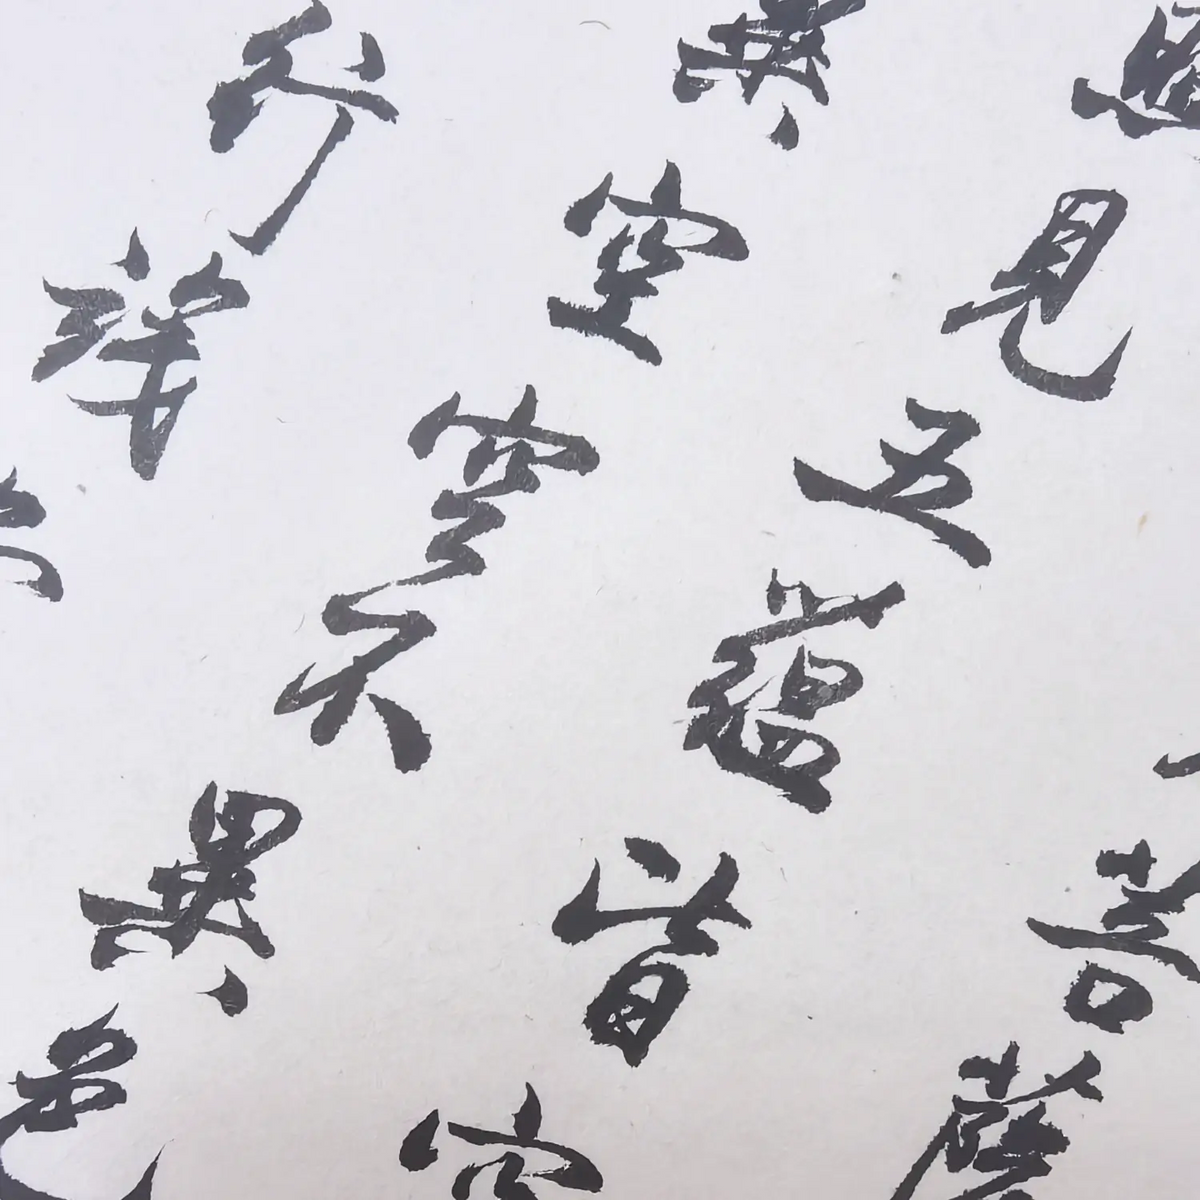 菩薩
照見五蘊皆空
異空空不異色
行識